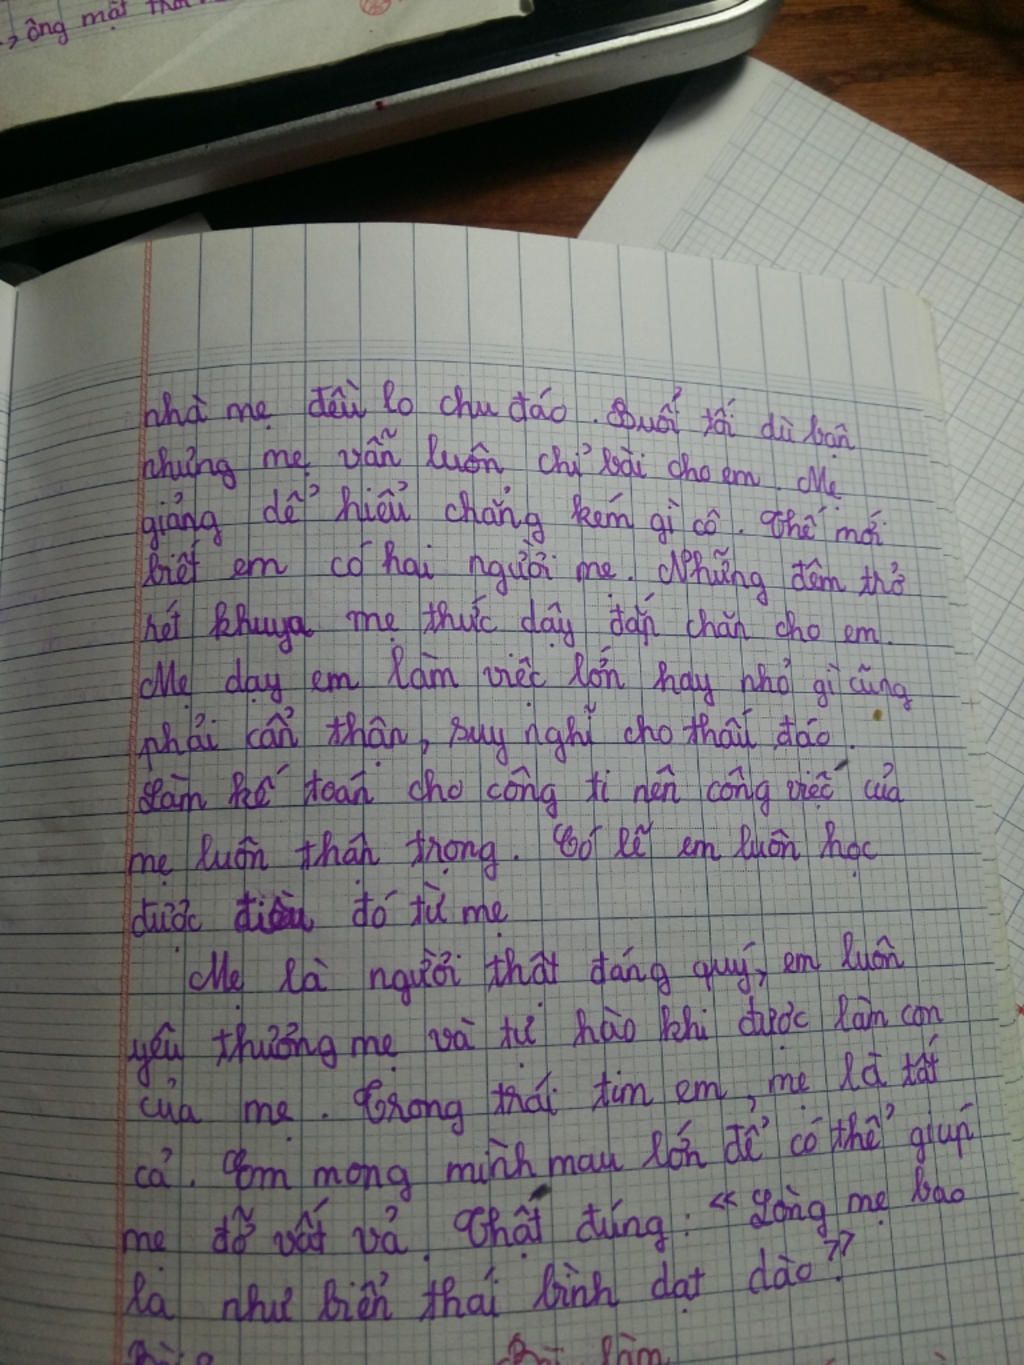 ông mặt
nhà mẹ đều lo chu đáo. Buổi tối dù bận
nhưng mẹ vẫn luôn chỉ bài cho em. Mẹ
giảng dể hiểu chẳng kém gì cô. Thế mới
biết em có hai người mẹ. Những đêm thở
hết khuya mẹ thức dậy đắp chăn cho em.
Mẹ dạy em làm việc lớn hay nhỏ gì cũng
phải cẩn thận, suy nghĩ cho thấu đáo.
Làm kế toán cho công ti nên công việc của
mẹ luôn thận trọng. Có lẽ em luôn học
được điều đó từ mẹ
Mẹ là người thật đáng quý, em luôn
yêu thương mẹ và tự hào khi được làm con
của mẹ. Trong trái tim em, mẹ là tất
cả. Em mong mình mau lớn để có thể giúp
mẹ đỡ vất vả. Thật đúng: « Lòng mẹ bao
la như biển thái bình dạt dào »
làm